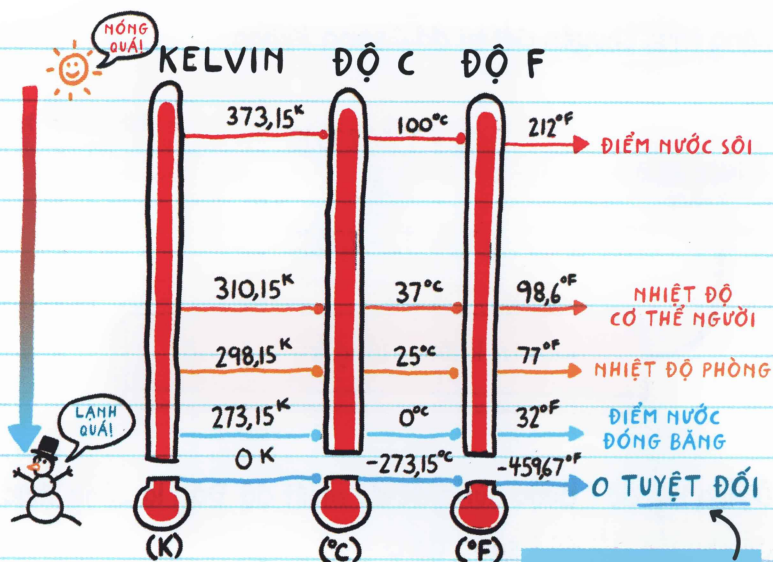 NÓNG
QUÁ!
KELVIN ĐỘ C ĐỘ F
373,15ᴷ 100°ᶜ 212°ᶠ ĐIỂM NƯỚC SÔI
310,15ᴷ 37°ᶜ 98,6°ᶠ NHIỆT ĐỘ
CƠ THỂ NGƯỜI
298,15ᴷ 25°ᶜ 77°ᶠ NHIỆT ĐỘ PHÒNG
LẠNH
QUÁ!
273,15ᴷ 0°ᶜ 32°ᶠ ĐIỂM NƯỚC
ĐÓNG BĂNG
0 K -273,15°ᶜ -459,67°ᶠ 0 TUYỆT ĐỐI
(K) (°C) (°F)